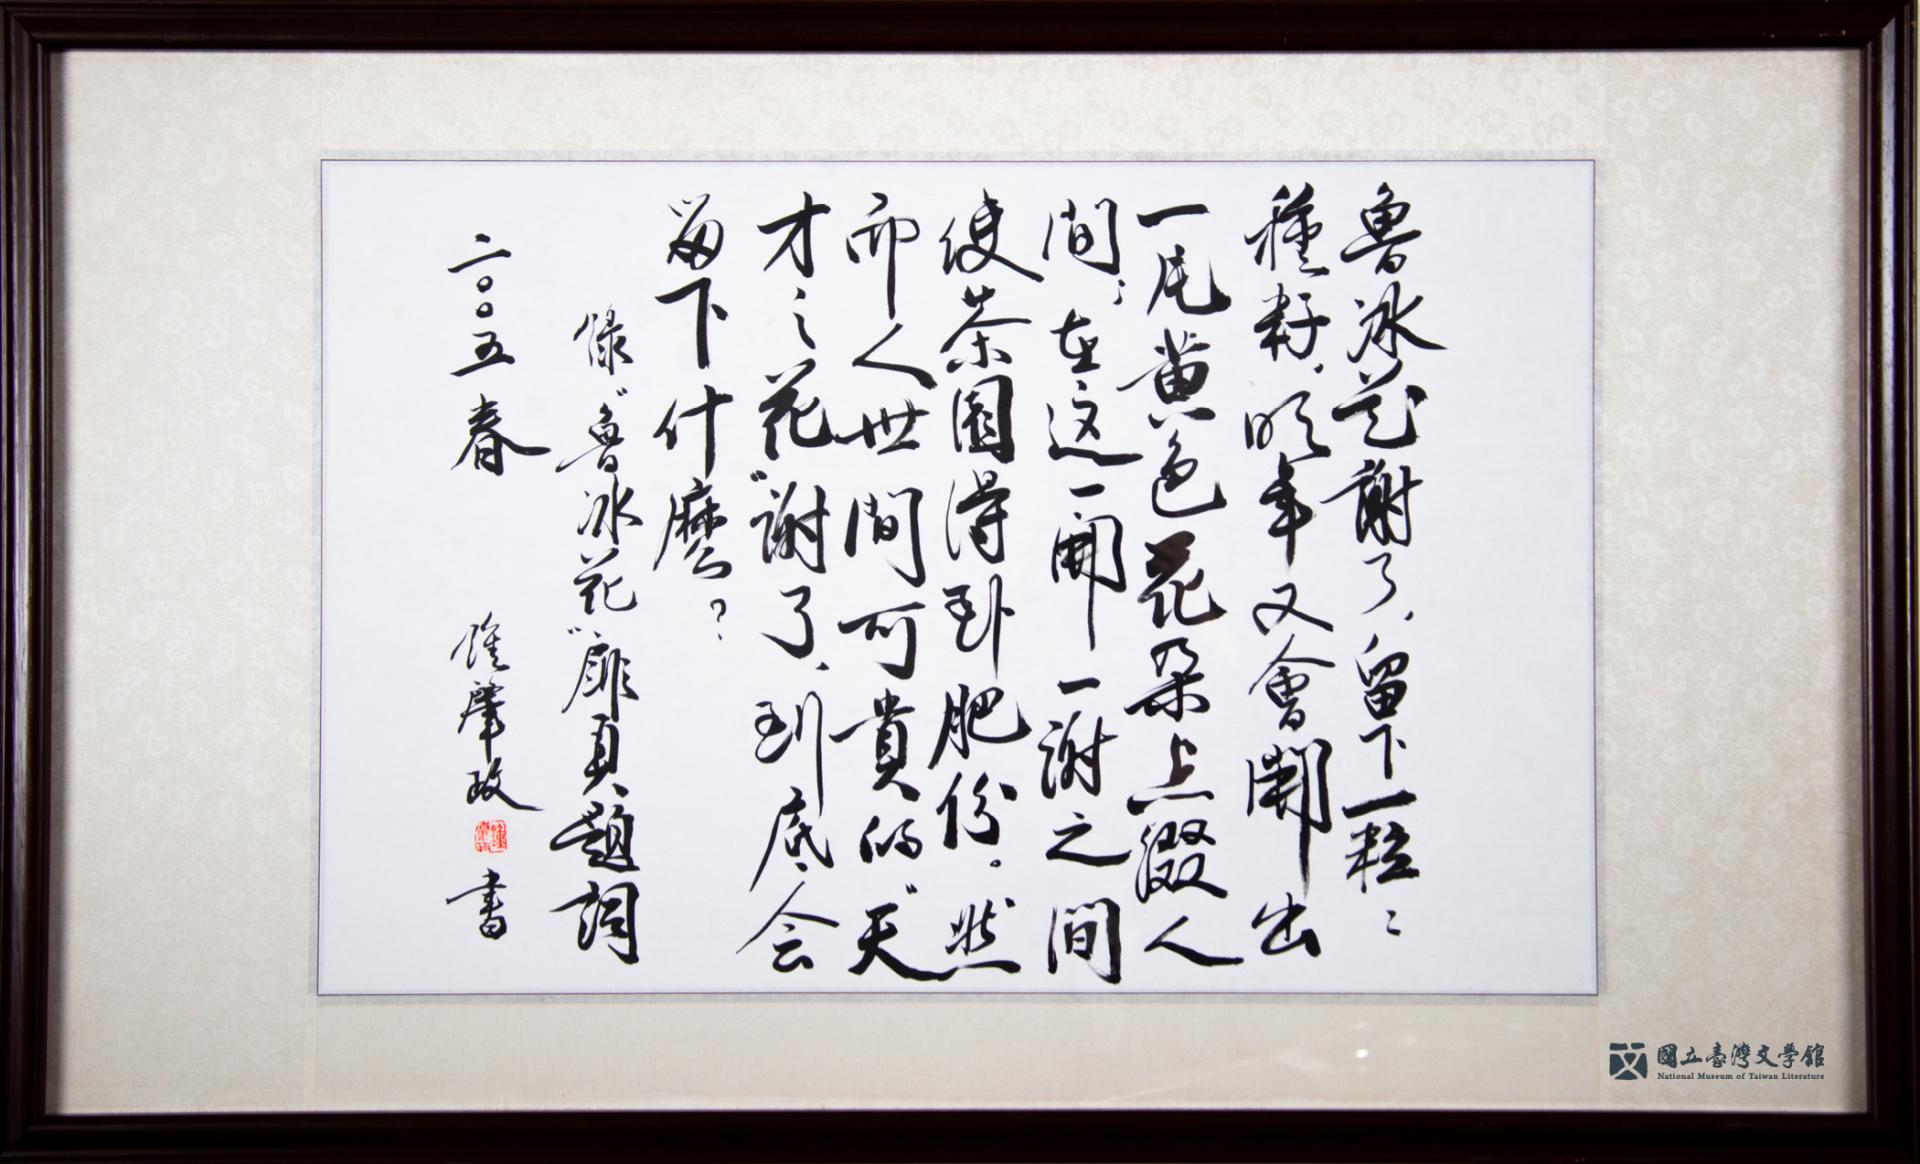 魯冰花謝了,留下一粒々
種籽,明年又會開出
一片黃色花朵点綴人
間;在这一開一謝之間
使茶園得到肥份。然
而人世間可貴的“天
才之花”謝了、到底会
留下什麼?
錄“魯冰花”扉頁題詞
二〇〇五春 鍾肇政 書
國立臺灣文學館
National Museum of Taiwan Literature